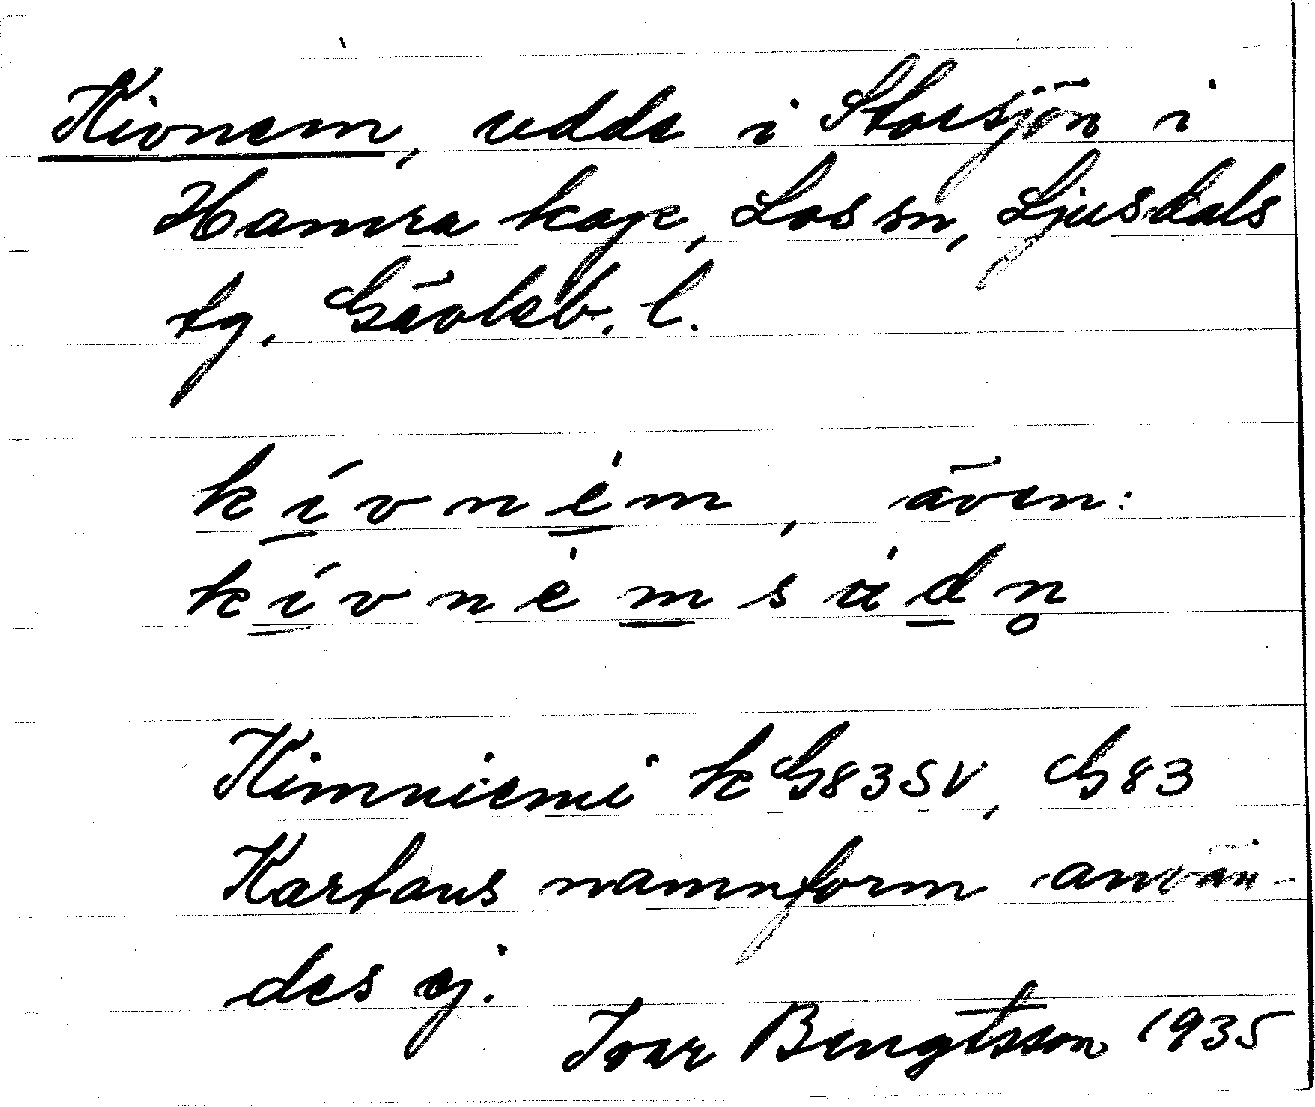 Kivnem, udde i Storsjön i
Hamra kap, Los sn, Ljusdals
tg. Gävleb. l.
kívnėm, även:
kívnėmsådn̥
Kimniemi k G83SV, G83
Kartans namnform använ-
des ej.
Ivar Bengtsson 1935